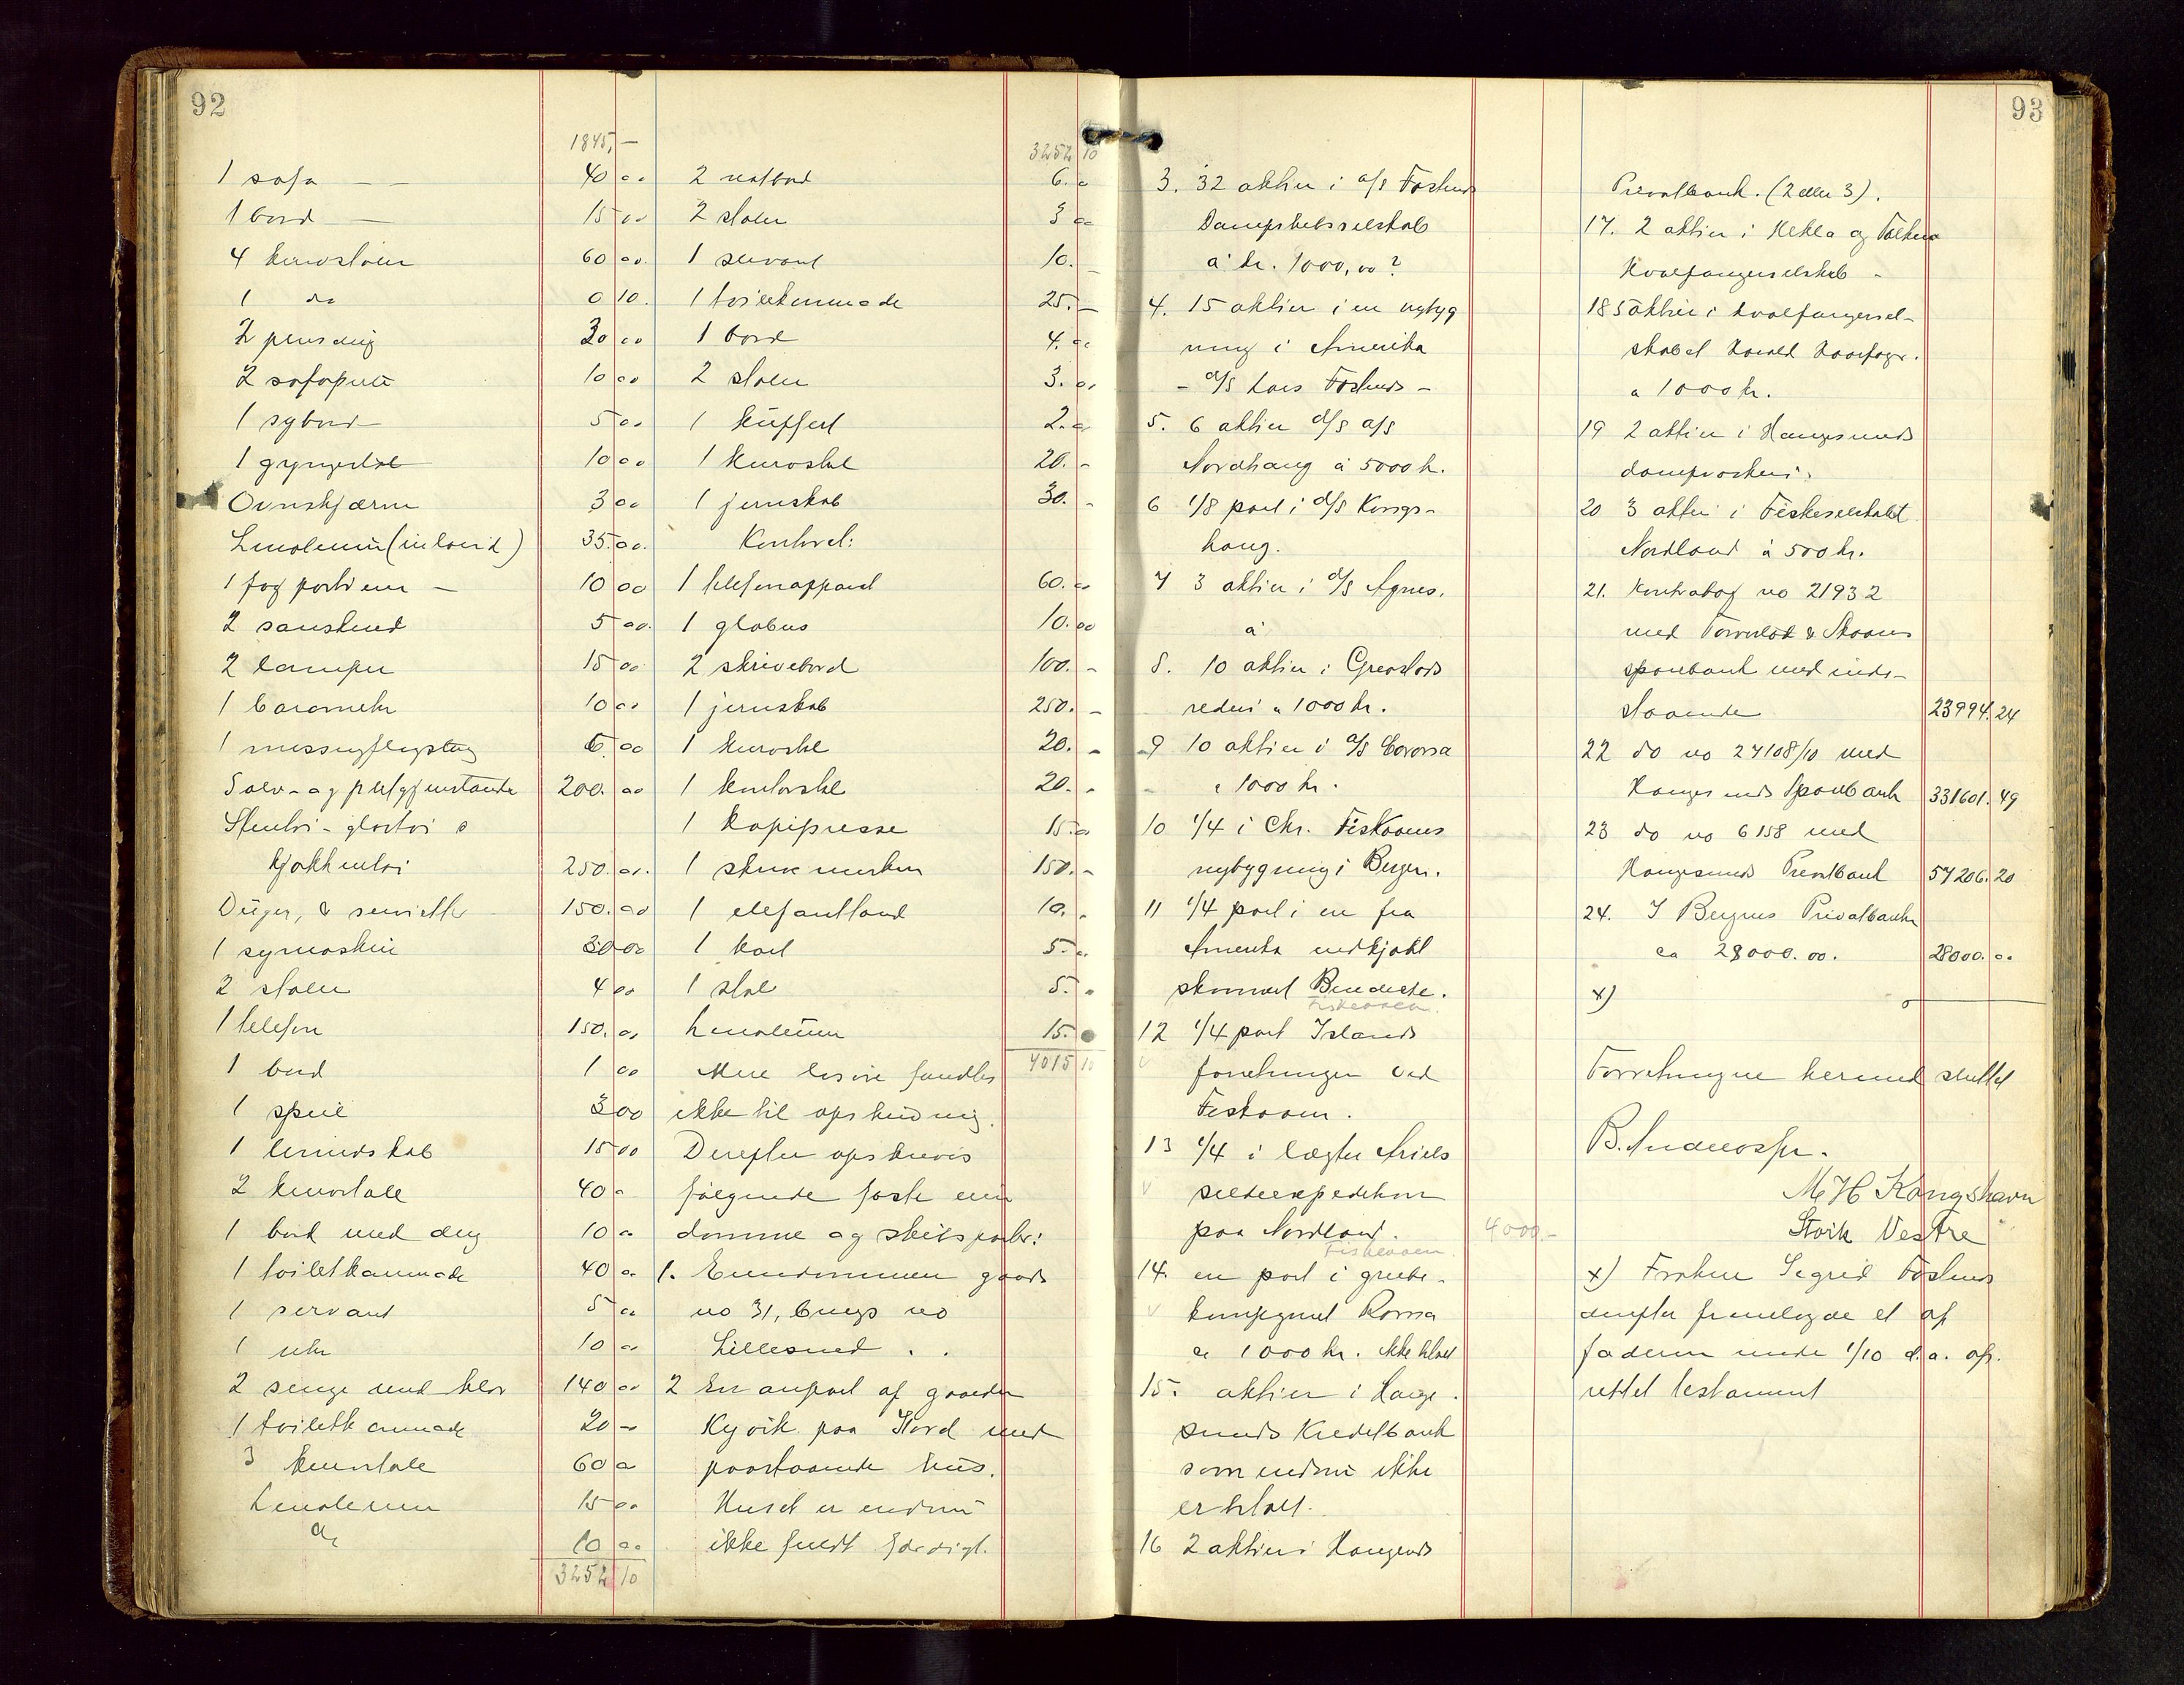 92
1845,-
1 sofa — — 40 00
1 bord — 15 00
4 kurvstoler 60 00
1 do 0 10
2 plusdug 30 00
2 sofapute 10 00
1 sybord 5 00
1 gyngestol 10 00
Ovnskjærm 3 00
Linoleum (inlaid) 35.00
1 fag portierer — 10 00
2 5 00
2 lamper 15 00
1 barometer 10 00
1 6 00
Sølv- og pletgjenstande 200. 00
Stentøi - glastøi &
kjøkkentøi 250. 00
Duger, & servietter 150. 00
1 symaskin 30 00
2 stoler 4 00
1 telefon 150. 00
1 bord 1 00
1 speil 3 00
1 linnedskab 15 00
2 kurvstole 40 0
1 bord med dug 10 00
1 toiletkommode 40 00
1 servant 5 00
1 uhr 10 00
2 senge med klær 140 00
1 toiletkommode 20 —
3 kurvstole 60 00
Linoleum 15 00
do 10 00
3252 10
3252 10
2 natbord 6. 00
2 stoler 3 00
1 servant 10. —
1 toiletkommode 25. —
1 bord 4. 00
2 stoler 3. 00
1 kuffert 2. 00
1 kurvstol 20. -
1 jernskab 30. -
Kontoret:
1 telefonapparat 60. 00
1 globus 10. 00
2 skrivebord 100. -
1 jernskab 250. -
1 kurvstol 20. -
1 kontorstol 20. -
1 kopipresse 15. 00
1 skrivemaskin 150. -
1 elefanttand 10. -
1 kart 5. 00
1 stol 5. 00
Linoleum 15.
4015 10
Mere løsøre fandtes
ikke til opskrivning.
Derefter opskreves
følgende faste eien
domme og skibsparter:
1. Eiendommen gaards
no 31, brugs no
Lillesund . .
2 En anpart af gaarden
Kyvik paa Stord med
paastaaende hus.
Huset er endnu
ikke fuldt færdigt.
93
3. 32 aktier i a/s Føslunds
Dampskibsselskab
a kr. 1000,00?
4. 15 aktier i en nybyg
ning i Amerika
- a/s Føslunds -
5. 6 aktier d/s a/s
Nordhaug á 5000 kr.
6 1/8 part i d/s Kongs-
haug.
7 3 aktier i d/s Agnes.
a
8. 10 aktier i
rederi a 1000 kr.
9 10 aktier i a/s
a 1000 kr.
10 1/4 i Chr. Fiskaaens
nybygning i Bergen.
11 1/4 part i en fra
Amerika indkjøbt
skonnert Benedicte.
Fiskaaen.
12 1/4 part Islands
forretninger ved
Fiskaaen.
13 1/4 i lægter Ariels
sildeexpedition
paa Nordland. 4000.-
Fiskaaen.
14. en part i grube-
kompagniet
a 1000 kr. ikke
15. aktier i Hauge.
sunds Kreditbank
som endnu ikke
er
16 2 aktier i Haugesunds
Privatbank. (2 eller 3).
17. 2 aktier i Hekla og
Hvalfangerselskab -
18 5 aktier i hvalfangersel-
skabet Harald Haarfagr.
a 1000 kr.
19 2 aktier i Haugesunds
dampvaskeri.
20 3 aktier i Fiskeselskabet
Nordland á 500 kr.
21. Kontrabog no 21932
med Torvestad & Skaares
sparebank med inde-
staaende 23994. 24
22 do no 27108/10 med
Haugesunds Sparebank 331601. 49
23 do no 6158 med
Haugesunds Privatbank 57206. 20
24. I Bergens Privatbank
ca 28000. 00. 28000. 00
x)
Forretningen hermed sluttet
B. Andreassen.
M H Kongshavn
Stork Vestre
x) Frøken Sigrid Føslund
derefter fremlagde et af
faderen under 1/10 d.a. op-
rettet testament